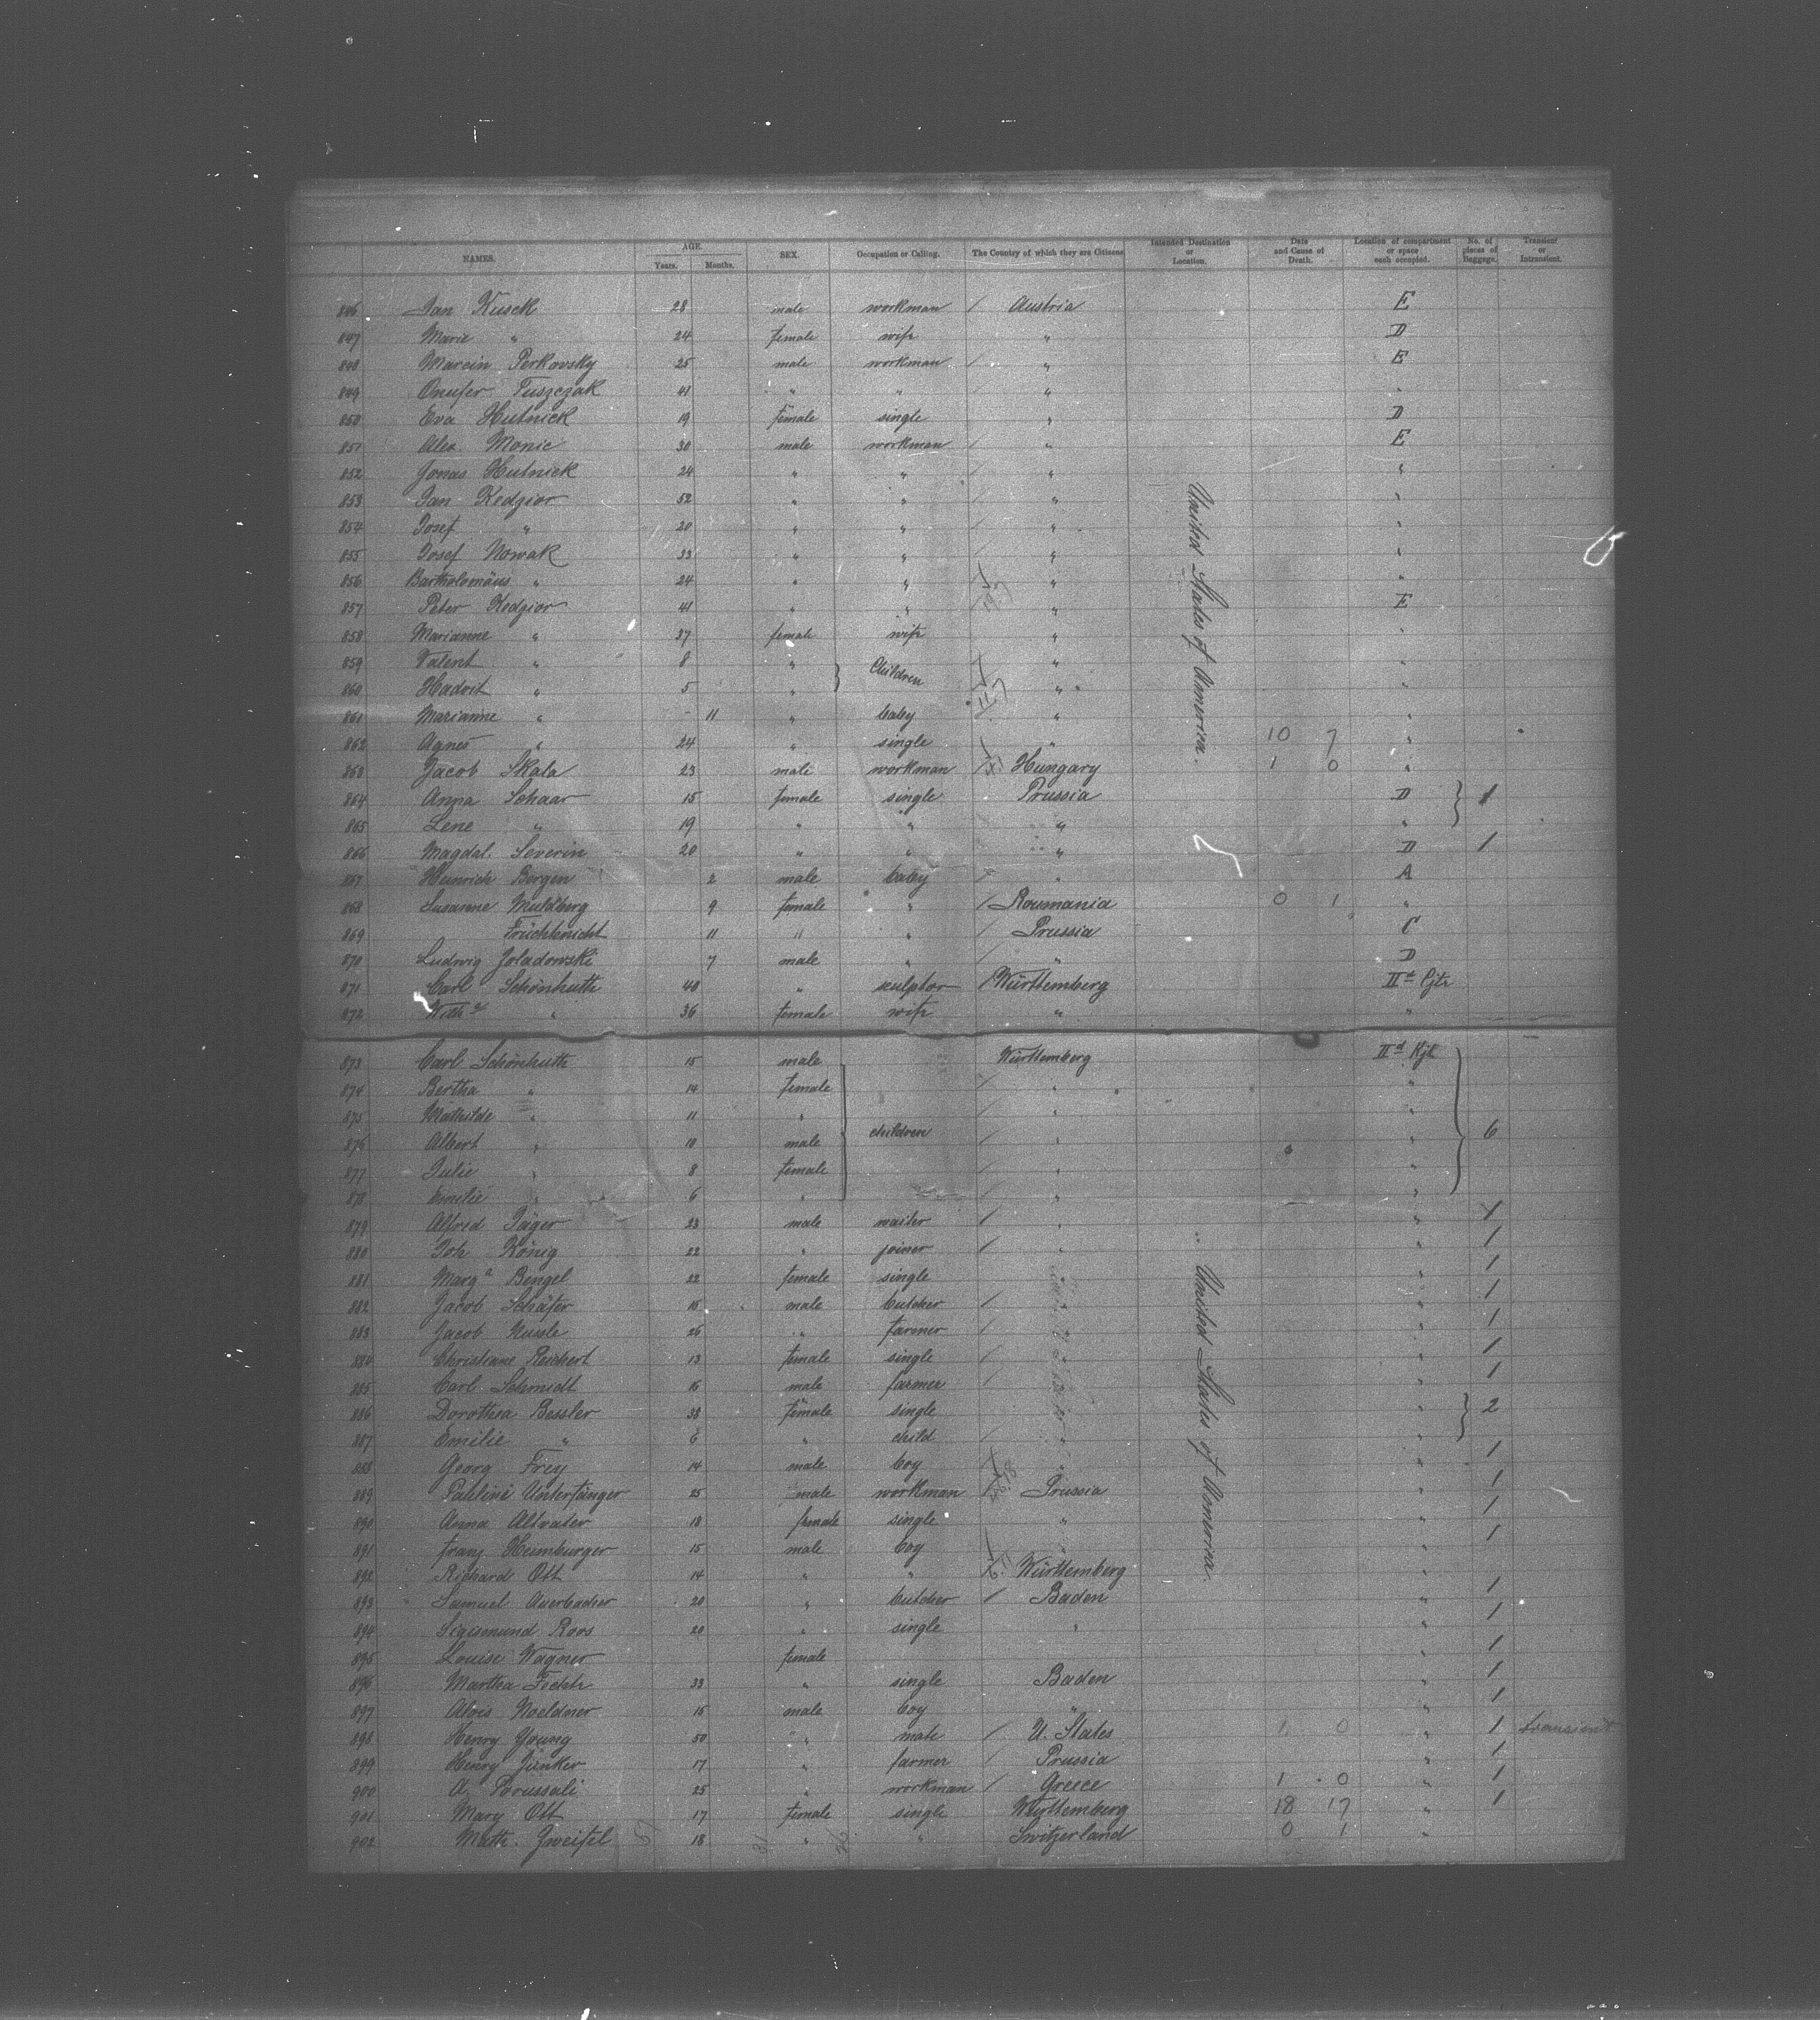 NAMES. AGE. Years. Months. SEX. Occupation or Calling. The Country of which they are Citizens Intended Destination or Location. Date and Cause of Death. Location of compartment or space each occupied. No. of pieces of Baggage. Transient or Intransient.
846 Jan Kusek 28 male workman / Austria E
847 Marie " 24 female wife " D
848 Marcin Perkovsky 25 male workman / " E
849 Onufer Puszczak 41 " " / " "
850 Eva Hutnick 19 female single " D
851 Alex Monic 30 male workman / " E
852 Jonas Hutnick 24 " " / " "
853 Jan Kedzior 52 " " / " "
854 Josef " 20 " " / " "
855 Josef Nowak 33 " " / " "
856 Bartholomäus " 24 " " " "
857 Peter Kedzior 41 " " " E
858 Marianne " 37 female wife " "
859 Valent " 8 " Children " "
860 Hadvit " 5 " " "
861 Marianne " - 11 " baby " "
862 Agnes " 24 " single " 10 7 "
863 Jacob Skala 23 male workman / Hungary 1 0 "
864 Anna Schaar 15 female single Prussia D 1
865 Lene " 19 " " " "
866 Magdal. Severin 20 " " " D 1
867 Heinrich Bergen 2 male baby " A
868 Susanne Muldberg 9 female " / Roumania 0 1 "
869 Früchtenicht 11 " " / Prussia C
870 Ludwig Joladowski 7 male " / " D
871 Carl Schönhuth 40 " sculptor / Württemberg IInd
872 " 36 female wife " "
United States of America.
873 Carl Schönhuth 15 male Württemberg IInd
874 Bertha " 14 female / " "
875 Mathilde " 11 " / " "
876 Albert " 10 male children / " " 6
877 Julie " 8 female / " "
878 Emilie " 6 " / " "
879 Alfred Jäger 23 male waiter / " " 1
880 Joh König 22 " joiner / " " 1
881 Marga Bengel 22 female single " 1
882 Jacob Schäfer 15 male butcher / " " 1
883 Jacob Nussle 26 " farmer / " " 1
884 Christiane Reichert 13 female single / " " 1
885 Carl Schmidt 16 male farmer / " 1
886 Dorothea Bessler 38 female single " 2
887 Emilie " 6 " child / " "
888 Georg Frey 14 male boy " " 1
889 Pauline Unterfänger 25 male workman / Prussia " 1
890 Anna Altvater 18 female single " " 1
891 Franz Heimburger 15 male boy " " 1
892 Richard Ott 14 " " Württemberg "
893 Samuel Auerbacher 20 " butcher / Baden " 1
894 Sigismund Roos 20 " single " " 1
895 Louise Wagner female " 1
896 Martha Fechte 33 " single Baden " 1
897 Alois Noeldner 15 male boy " " 1
898 Henry Young 50 " mate / U. States 1 0 " 1 transient
899 Henry Junker 17 " farmer / Prussia " 1
900 A. Brussali 25 " workman / Greece 1 0 " 1
901 Mary Ott 17 female single Württemberg 18 17 " 1
902 Math. Zweifel 18 " " Switzerland 0 1 "
United States of America.